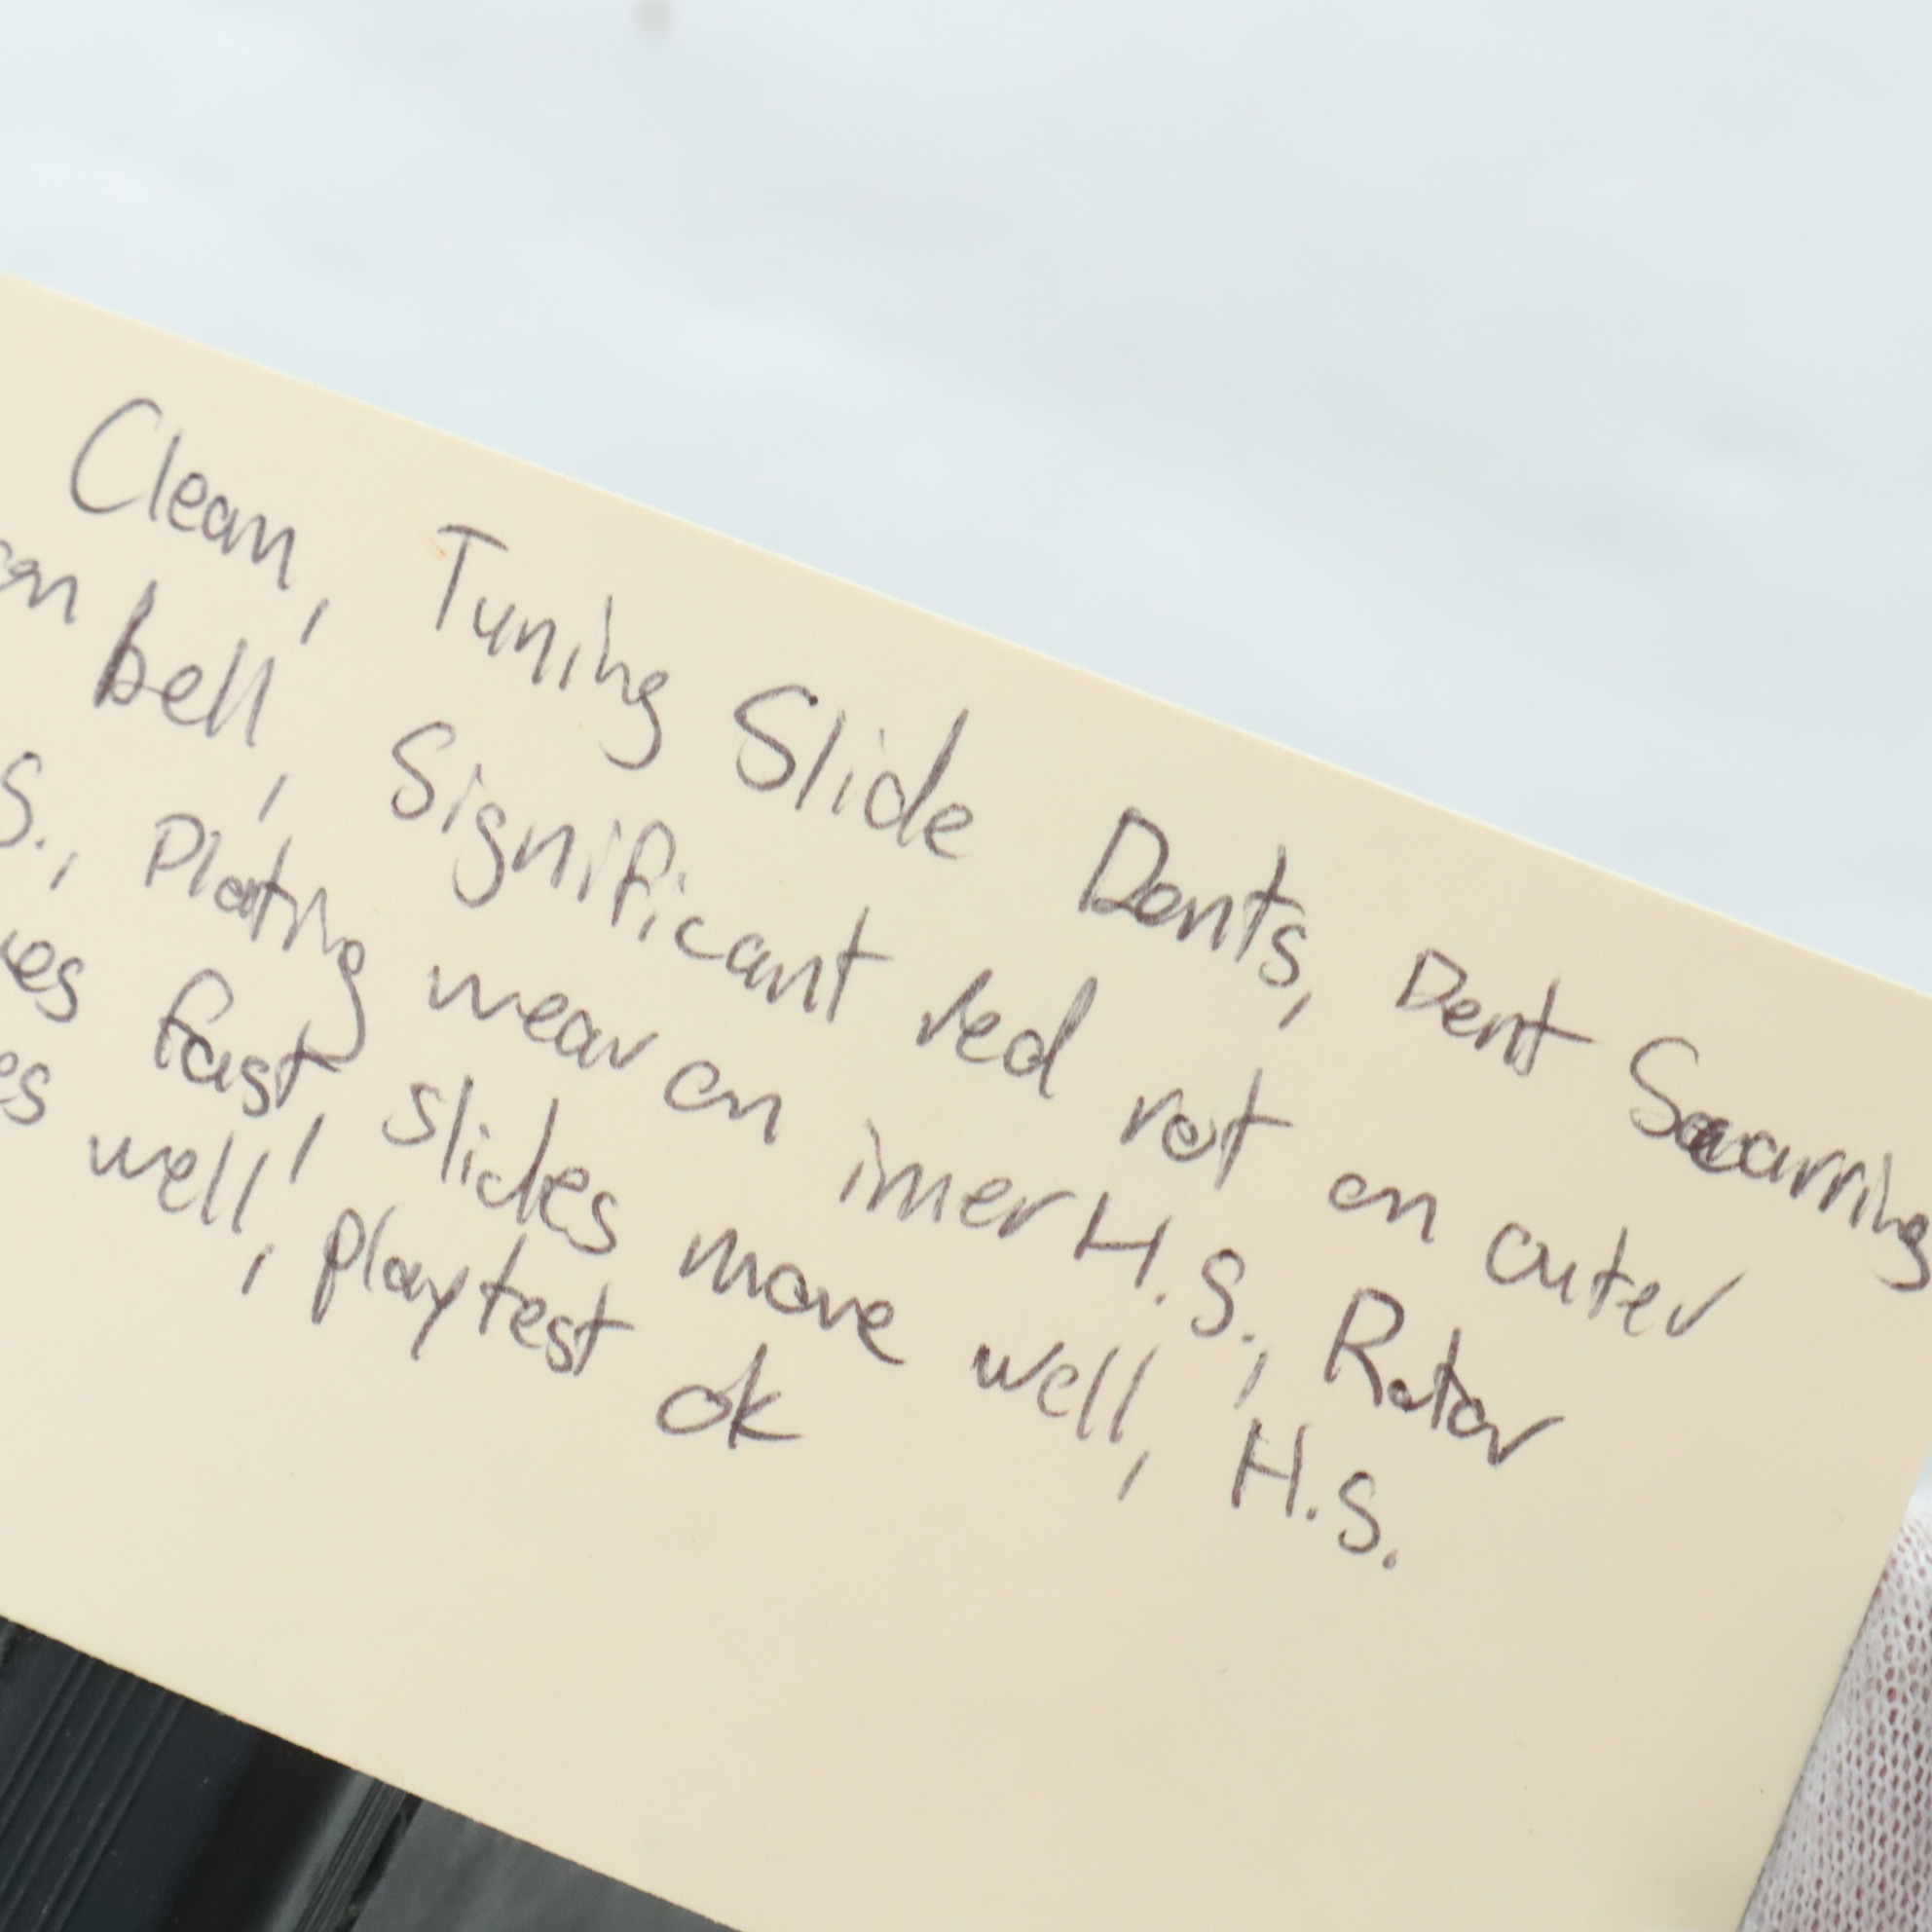 Clean, Tuning Slide Dents, Dent Scarring
on bell, Significant red rot on outer
S., Plating wear on inner H.S., Rotor
fast, slides move well, H.S.
well, playtest ok